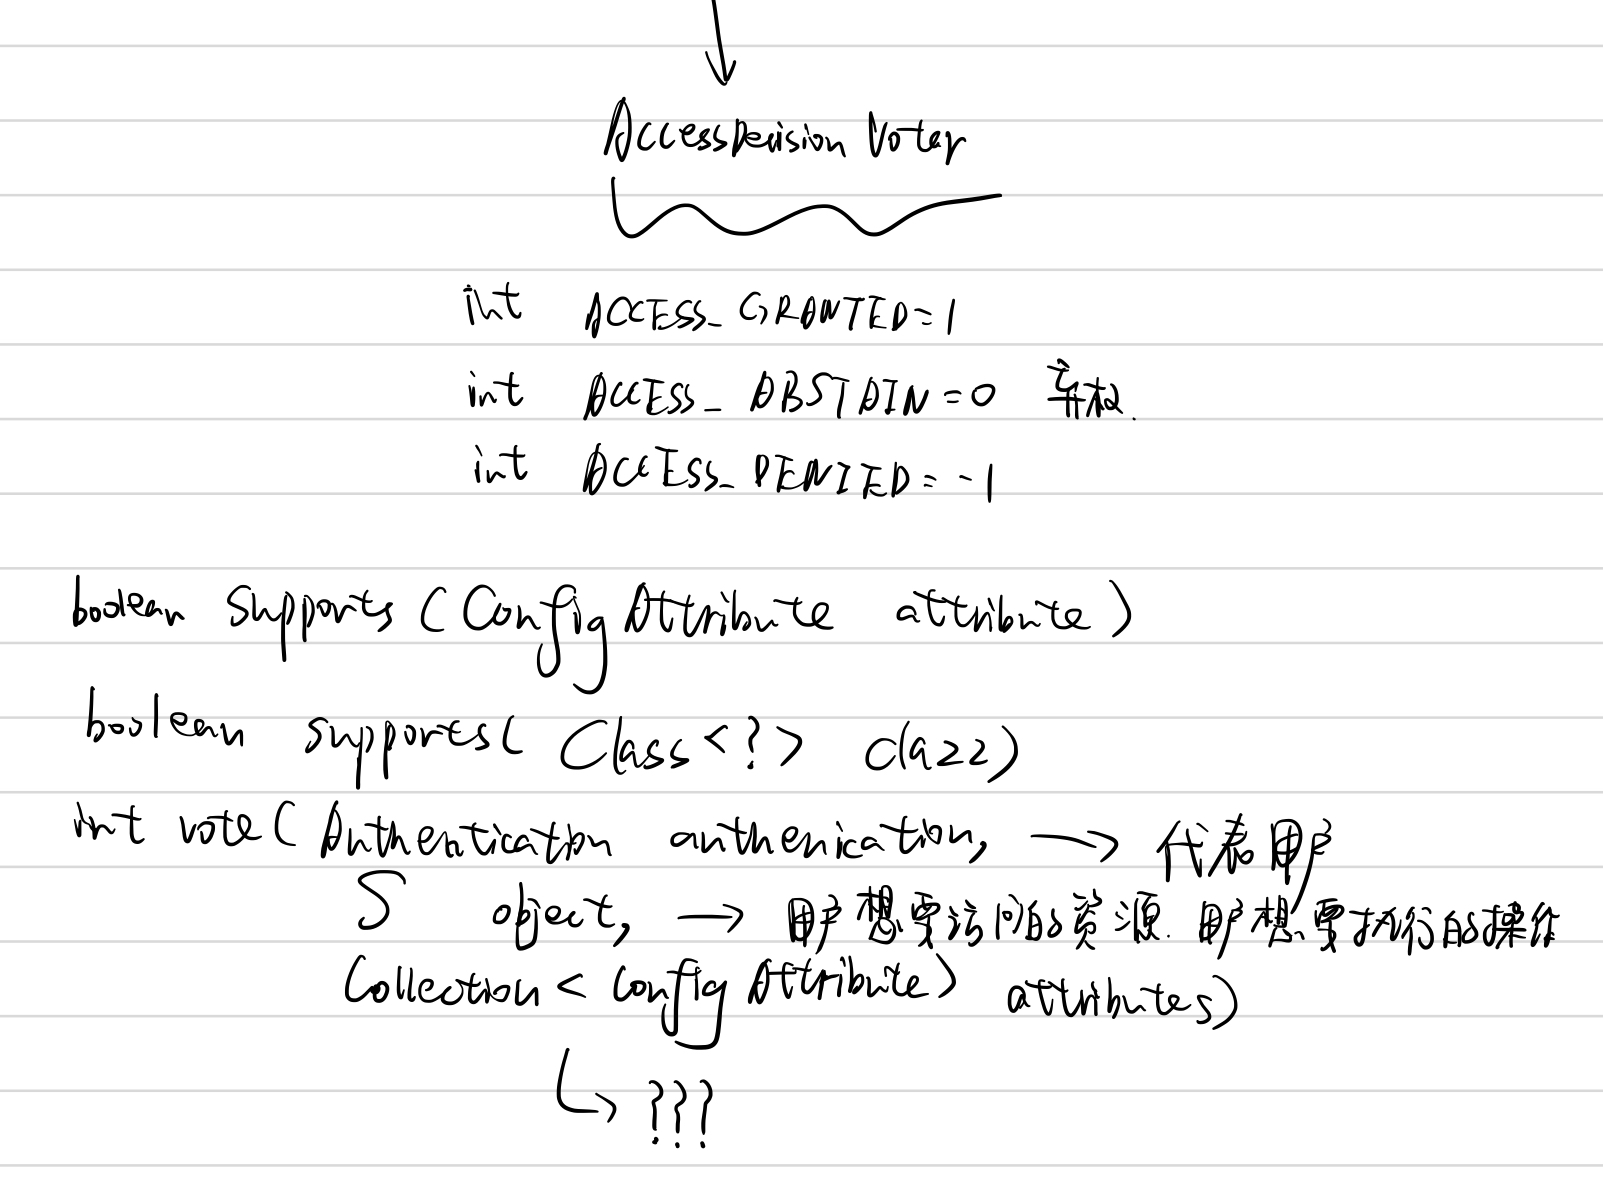 AccessDecision Voter
int ACCESS_GRANTED=1
int ACCESS_ABSTAIN=0 弃权.
int ACCESS_DENIED=-1
boolean supports (ConfigAttribute attribute)
boolean supports( Class<?> clazz)
int vote( Authentication authenication, → 代表用户
S object, → 用户想要访问的资源. 用户想要执行的操作
Collection<ConfigAttribute> attributes)
↳ ???